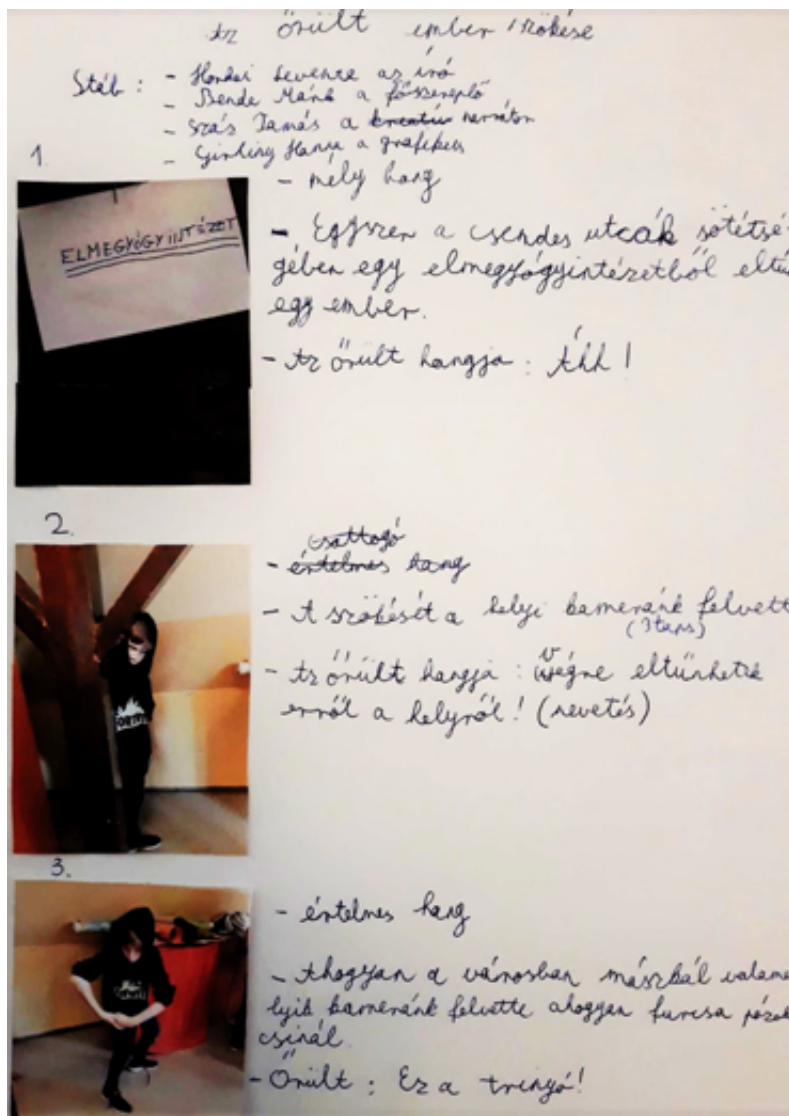 Az őrült ember szökése
Stáb: - Levente az író
- Bende Márk a főszereplő
- Szás Tamás a kreatív narrátor
- Hanna a grafikus
1.
ELMEGYÓGYINTÉZET
- mély hang
- Egyszer a csendes utcák sötétsé-
gében egy elmegyógyintézetből eltű
egy ember.
- Az őrült hangja: Áhh!
2.
csattogó
- értelmes hang
- A szökését a helyi kameránk felvett
(3 taps)
- Az őrült hangja: végre eltűnhetek
erről a helyről! (nevetés)
3.
- értelmes hang
- Ahogyan a városban mászkál valame
lyik kameránk felvette ahogyan furcsa pózok
csinál.
- Őrült: Ez a trinyó!